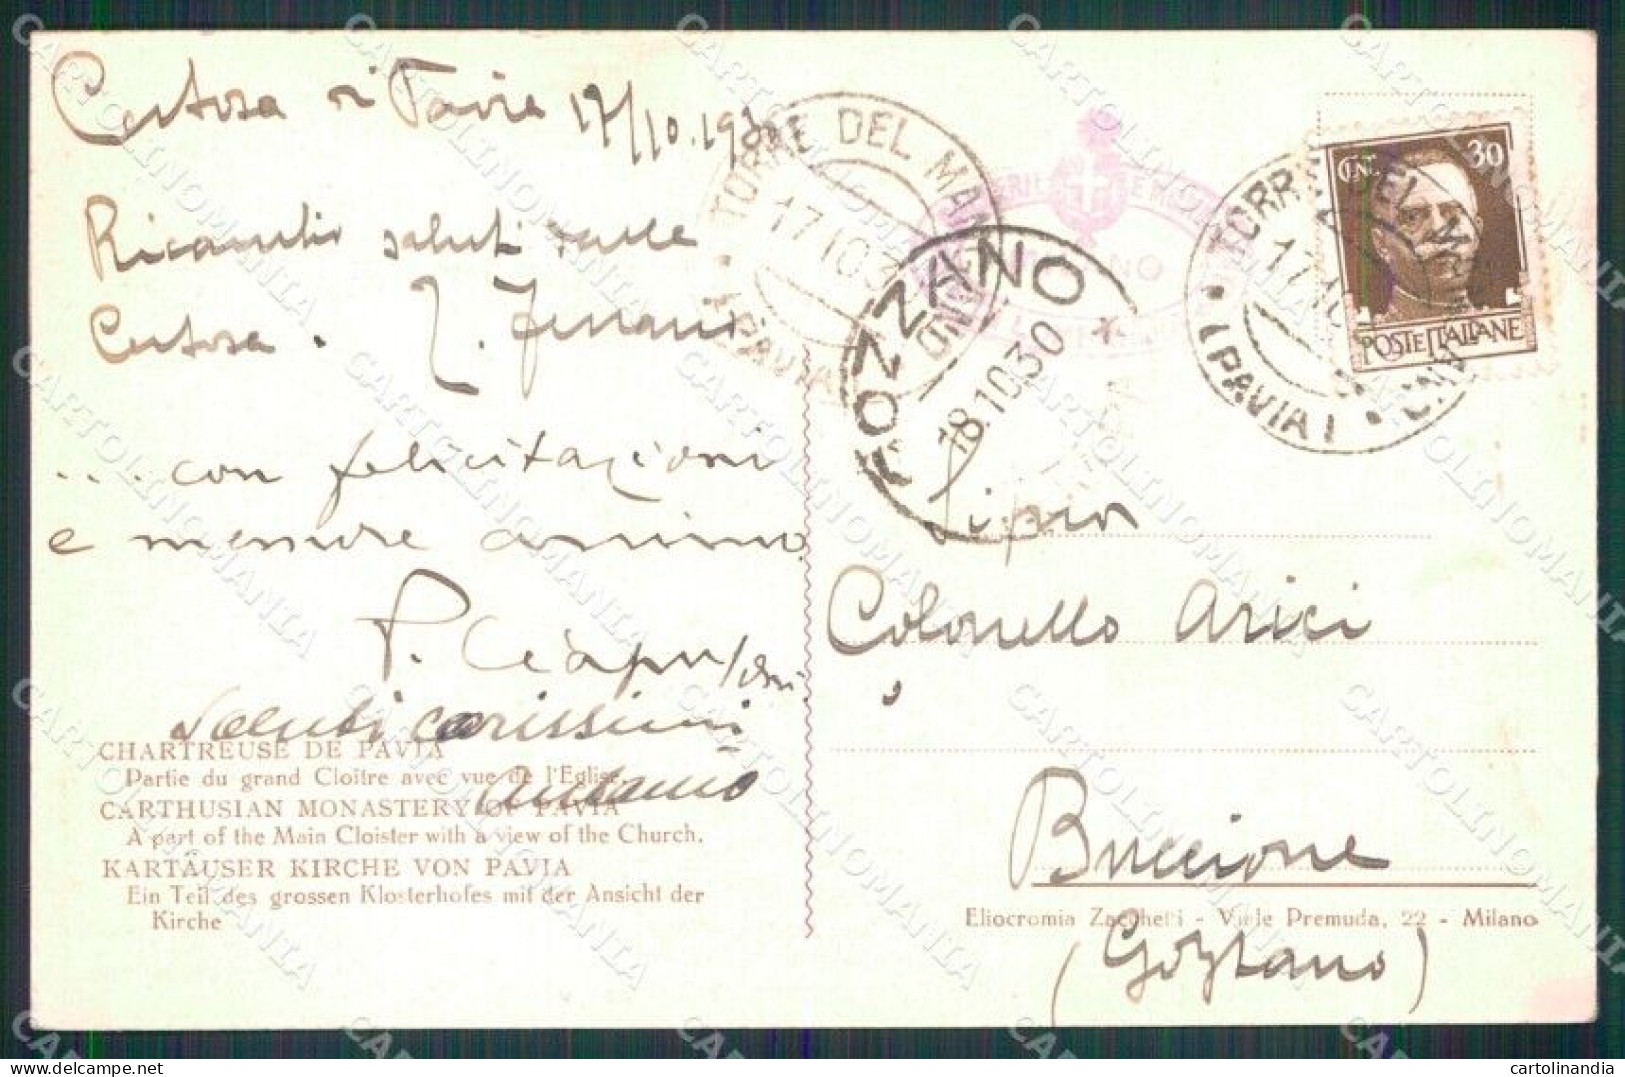 Certosa di Pavia 17/10.1930
Ricambio saluti dalla
Certosa.
... con felicitazioni
e memore animo
P.
saluti carissimi
CHARTREUSE DE PAVIA
Partie du grand Cloître avec vue de l'Eglise.
CARTHUSIAN MONASTERY OF PAVIA
A part of the Main Cloister with a view of the Church.
KARTÄUSER KIRCHE VON PAVIA
Ein Teil des grossen Klosterhofes mit der Ansicht der
Kirche
TORRE DEL MANGANO
17.10.30
(PAVIA)
GOZZANO
18.10.30
TORRE DEL MANGANO
17.10
(PAVIA)
CENT. 30
POSTE ITALIANE
Colonello Arici
Buccione
Eliocromia Zacchetti - Viale Premuda, 22 - Milano
(Gozzano)
CARTOLINOMANIA
cartolinandia